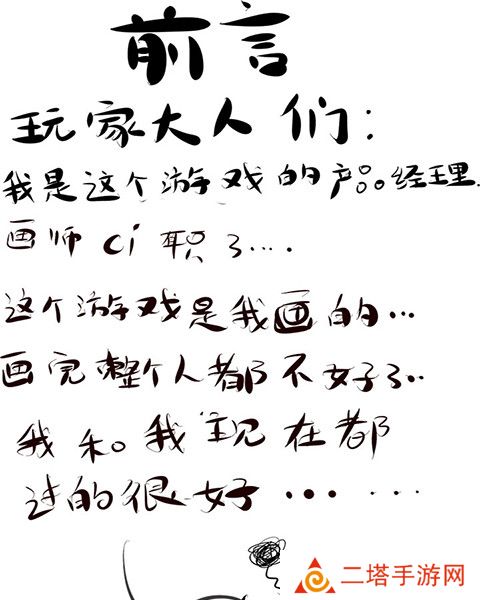 前言
玩家大人们：
我是这个游戏的产品经理.
画师ci职了...
这个游戏是我画的...
画完整个人都不好了..
我和我现在都
过的很好... ...
二塔手游网